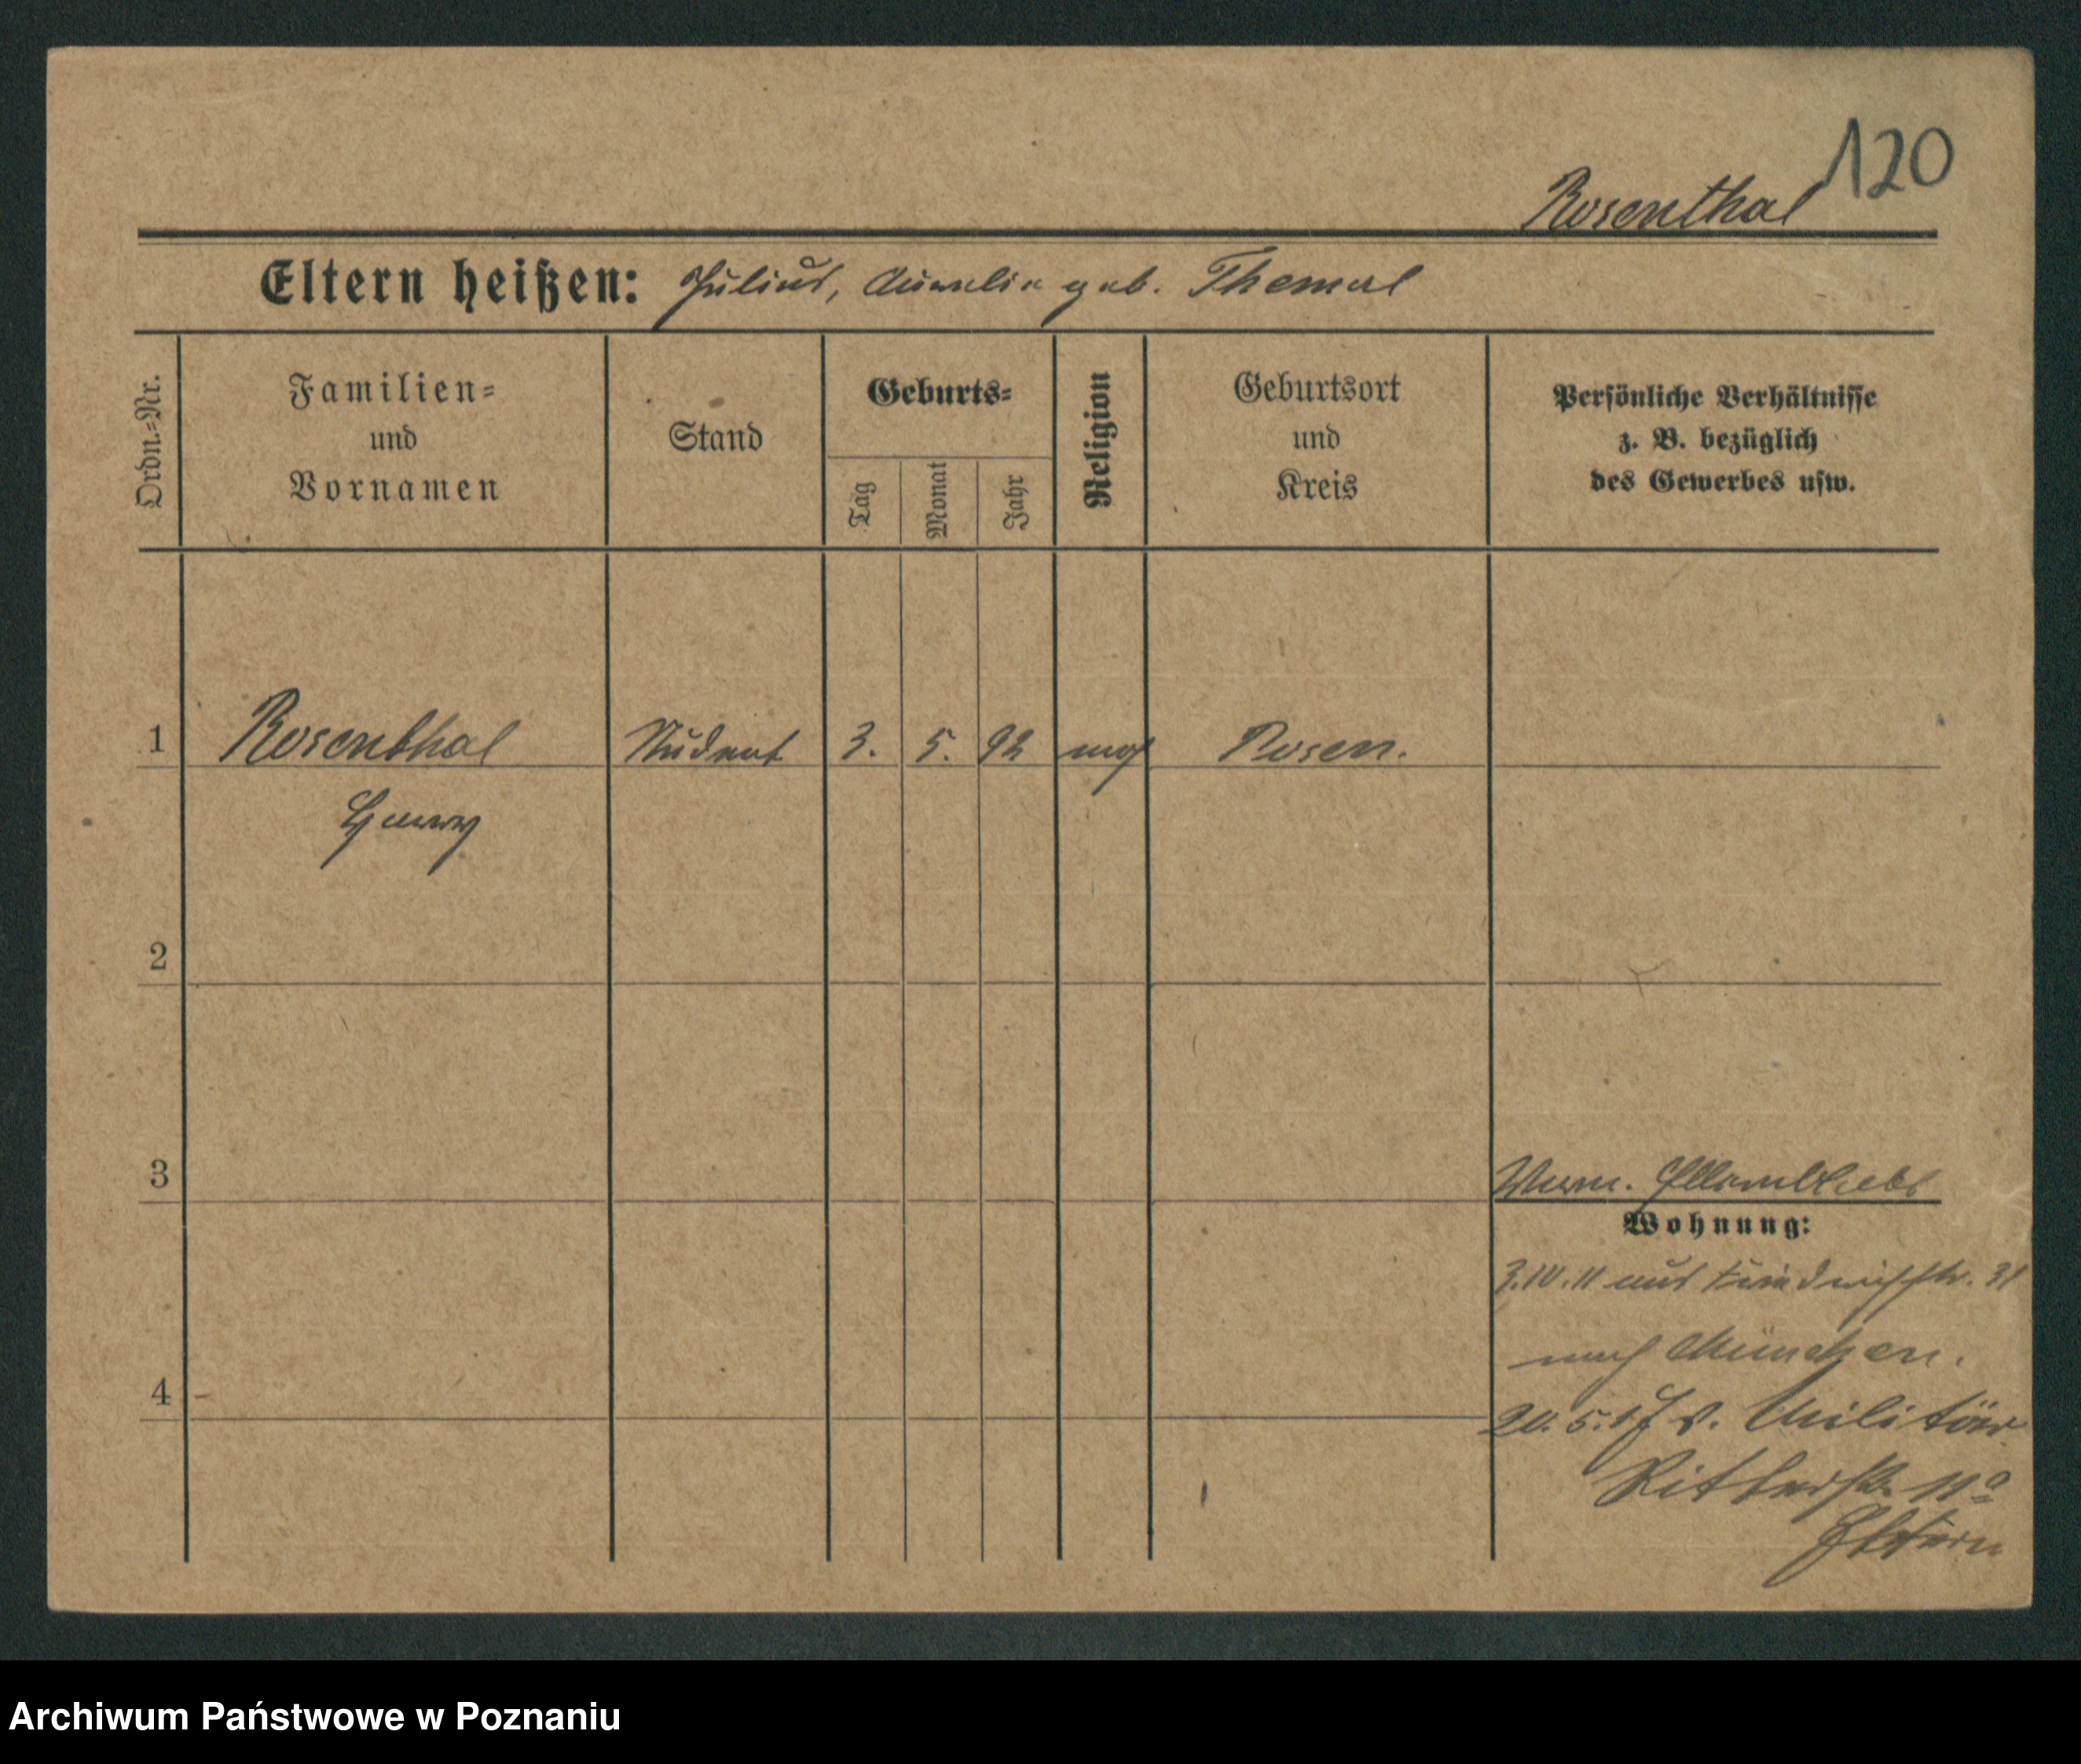 120
Rosenthal
Eltern heißen: Julius, Aurelie geb. Themal
Ordn.-Nr.
Familien-
und
Vornamen
Stand
Geburts-
Tag
Monat
Jahr
Religion
Geburtsort
und
Kreis
Persönliche Verhältnisse
z. B. bezüglich
des Gewerbes usw.
1 Rosenthal Student 3. 5. 92 mos Posen.
Harry
2
3
Wohnung:
3.10.11 aus 31
nach München.
4
20. 5. 17 v. Militär
Ritterstr. 11a
Eltern
Archiwum Państwowe w Poznaniu